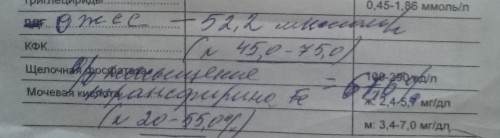 Триглицериды 0,45-1,86 ммоль/л
ОЖСС - 52,2 мкмоль/л
КФК (N 45,0-75,0)
Щелочная фосфатаза 100-290 ед/л
% насыщение
трансферрина Fe =
Мочевая кислота ж: 2,4-5,7 мг/дл
(N 20-55,0%) м: 3,4-7,0 мг/дл